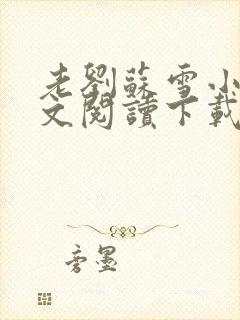 老劉蘇雪小
文閱讀下載
旁墨